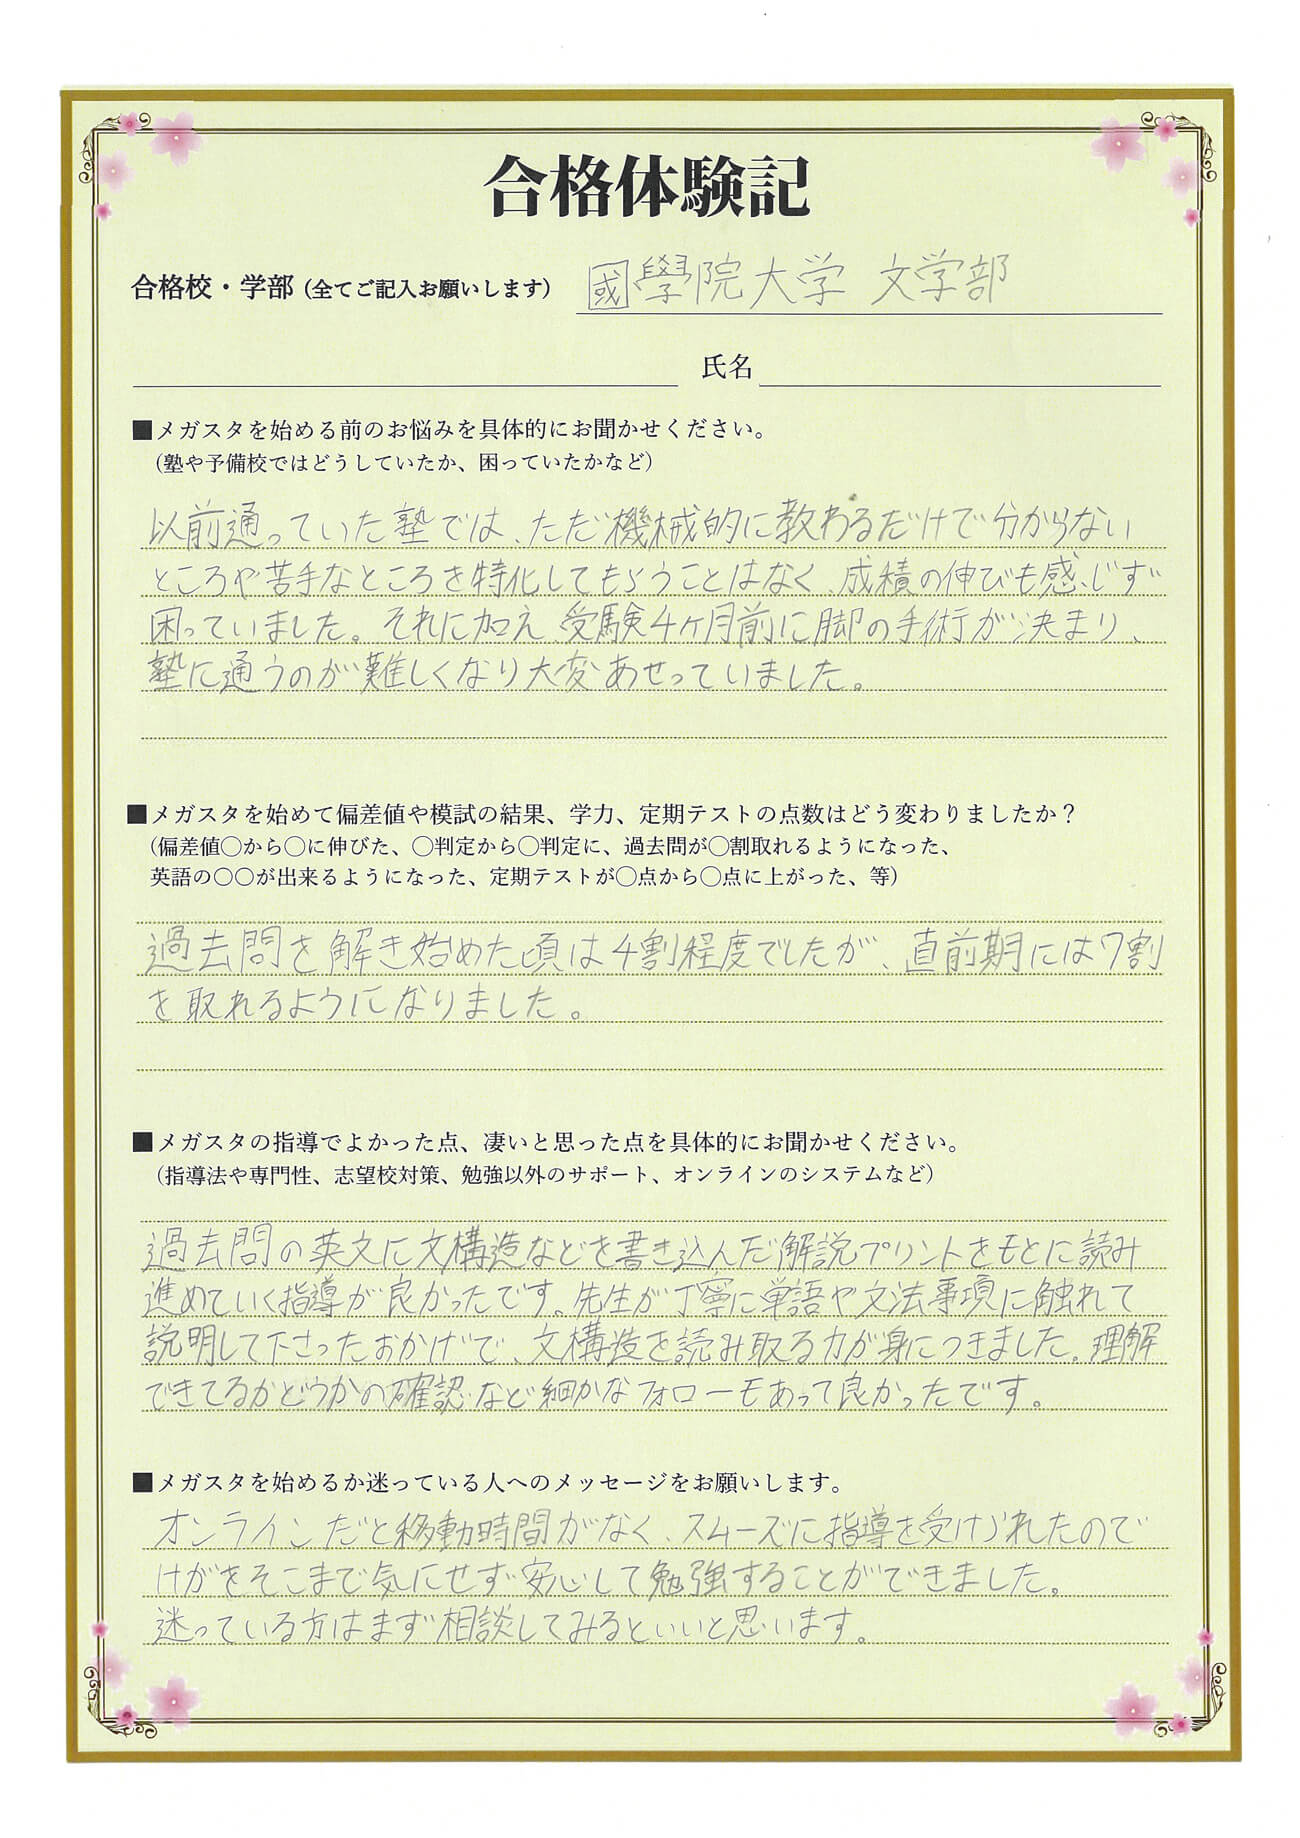 合格体験記
合格校・学部(全てご記入お願いします) 國學院大学 文学部
氏名
■メガスタを始める前のお悩みを具体的にお聞かせください。
(塾や予備校ではどうしていたか、困っていたかなど)
以前通っていた塾では、ただ機械的に教わるだけで分からない
ところや苦手なところを特化してもらうことはなく、成績の伸びも感じず
困っていました。それに加え、受験4ヶ月前に脚の手術が決まり、
塾に通うのが難しくなり大変あせっていました。
■メガスタを始めて偏差値や模試の結果、学力、定期テストの点数はどう変わりましたか？
(偏差値〇から〇に伸びた、〇判定から〇判定に、過去問が〇割取れるようになった、
英語の〇〇が出来るようになった、定期テストが〇点から〇点に上がった、等)
過去問を解き始めた頃は4割程度でしたが、直前期には7割
を取れるようになりました。
■メガスタの指導でよかった点、凄いと思った点を具体的にお聞かせください。
(指導法や専門性、志望校対策、勉強以外のサポート、オンラインのシステムなど)
過去問の英文に文構造などを書き込んだ解説プリントをもとに読み
進めていく指導が良かったです。先生が丁寧に単語や文法事項に触れて
説明して下さったおかげで、文構造を読み取る力が身につきました。理解
できてるかどうかの確認など細かなフォローもあって良かったです。
■メガスタを始めるか迷っている人へのメッセージをお願いします。
オンラインだと移動時間がなく、スムーズに指導を受けられたので
けがをそこまで気にせず安心して勉強することができました。
迷っている方はまず相談してみるといいと思います。